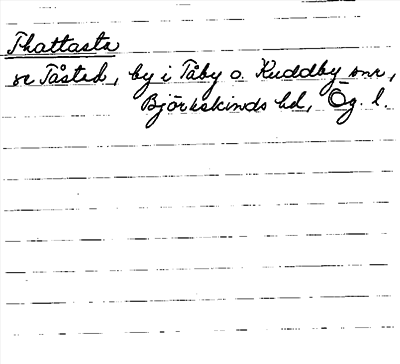 Thattasta
se Tåsted, by i Tåby o. Kuddby snr,
Björkekinds hd, Ög. l.